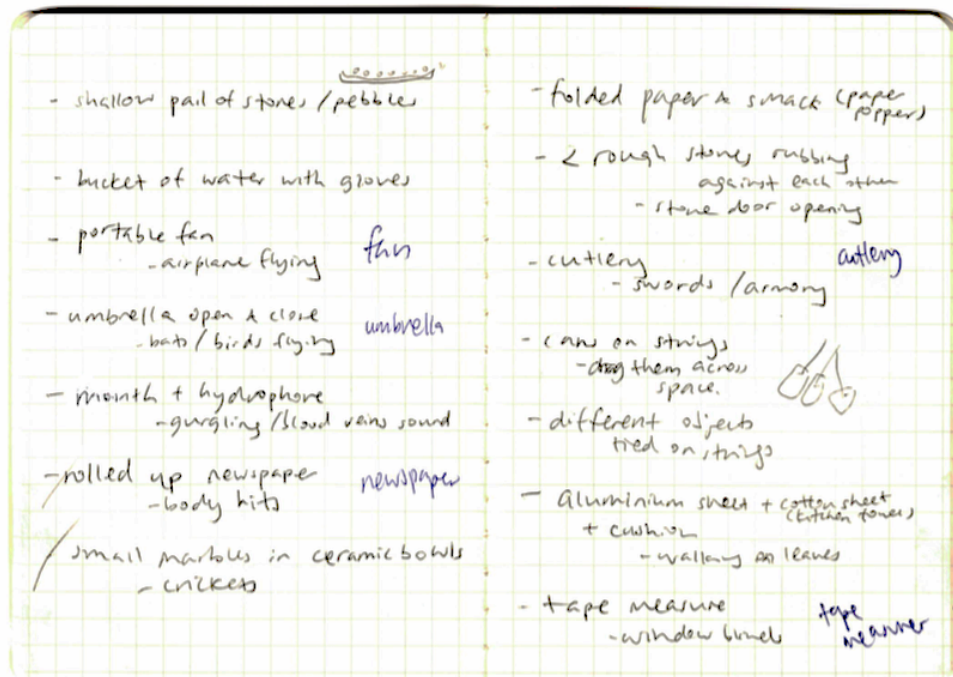 - shallow pail of stones / pebbles
- bucket of water with gloves
- portable fan
- airplane flying
fan
- umbrella open & close
- bats / birds flying
umbrella
- mouth + hydrophone
- gurgling / blood veins sound
- rolled up newspaper
- body hits
newspaper
small marbles in ceramic bowls
- crickets
- folded paper & smack (paper
popper)
- 2 rough stones rubbing
against each other
- stone door opening
- cutlery
- swords / armory
cutlery
- cans on strings
- drag them across
space.
- different objects
tied on strings
- aluminium sheet + cotton sheet
(kitchen towel)
+ cushion
- walking on leaves
- tape measure
- window blinds
tape
measurer